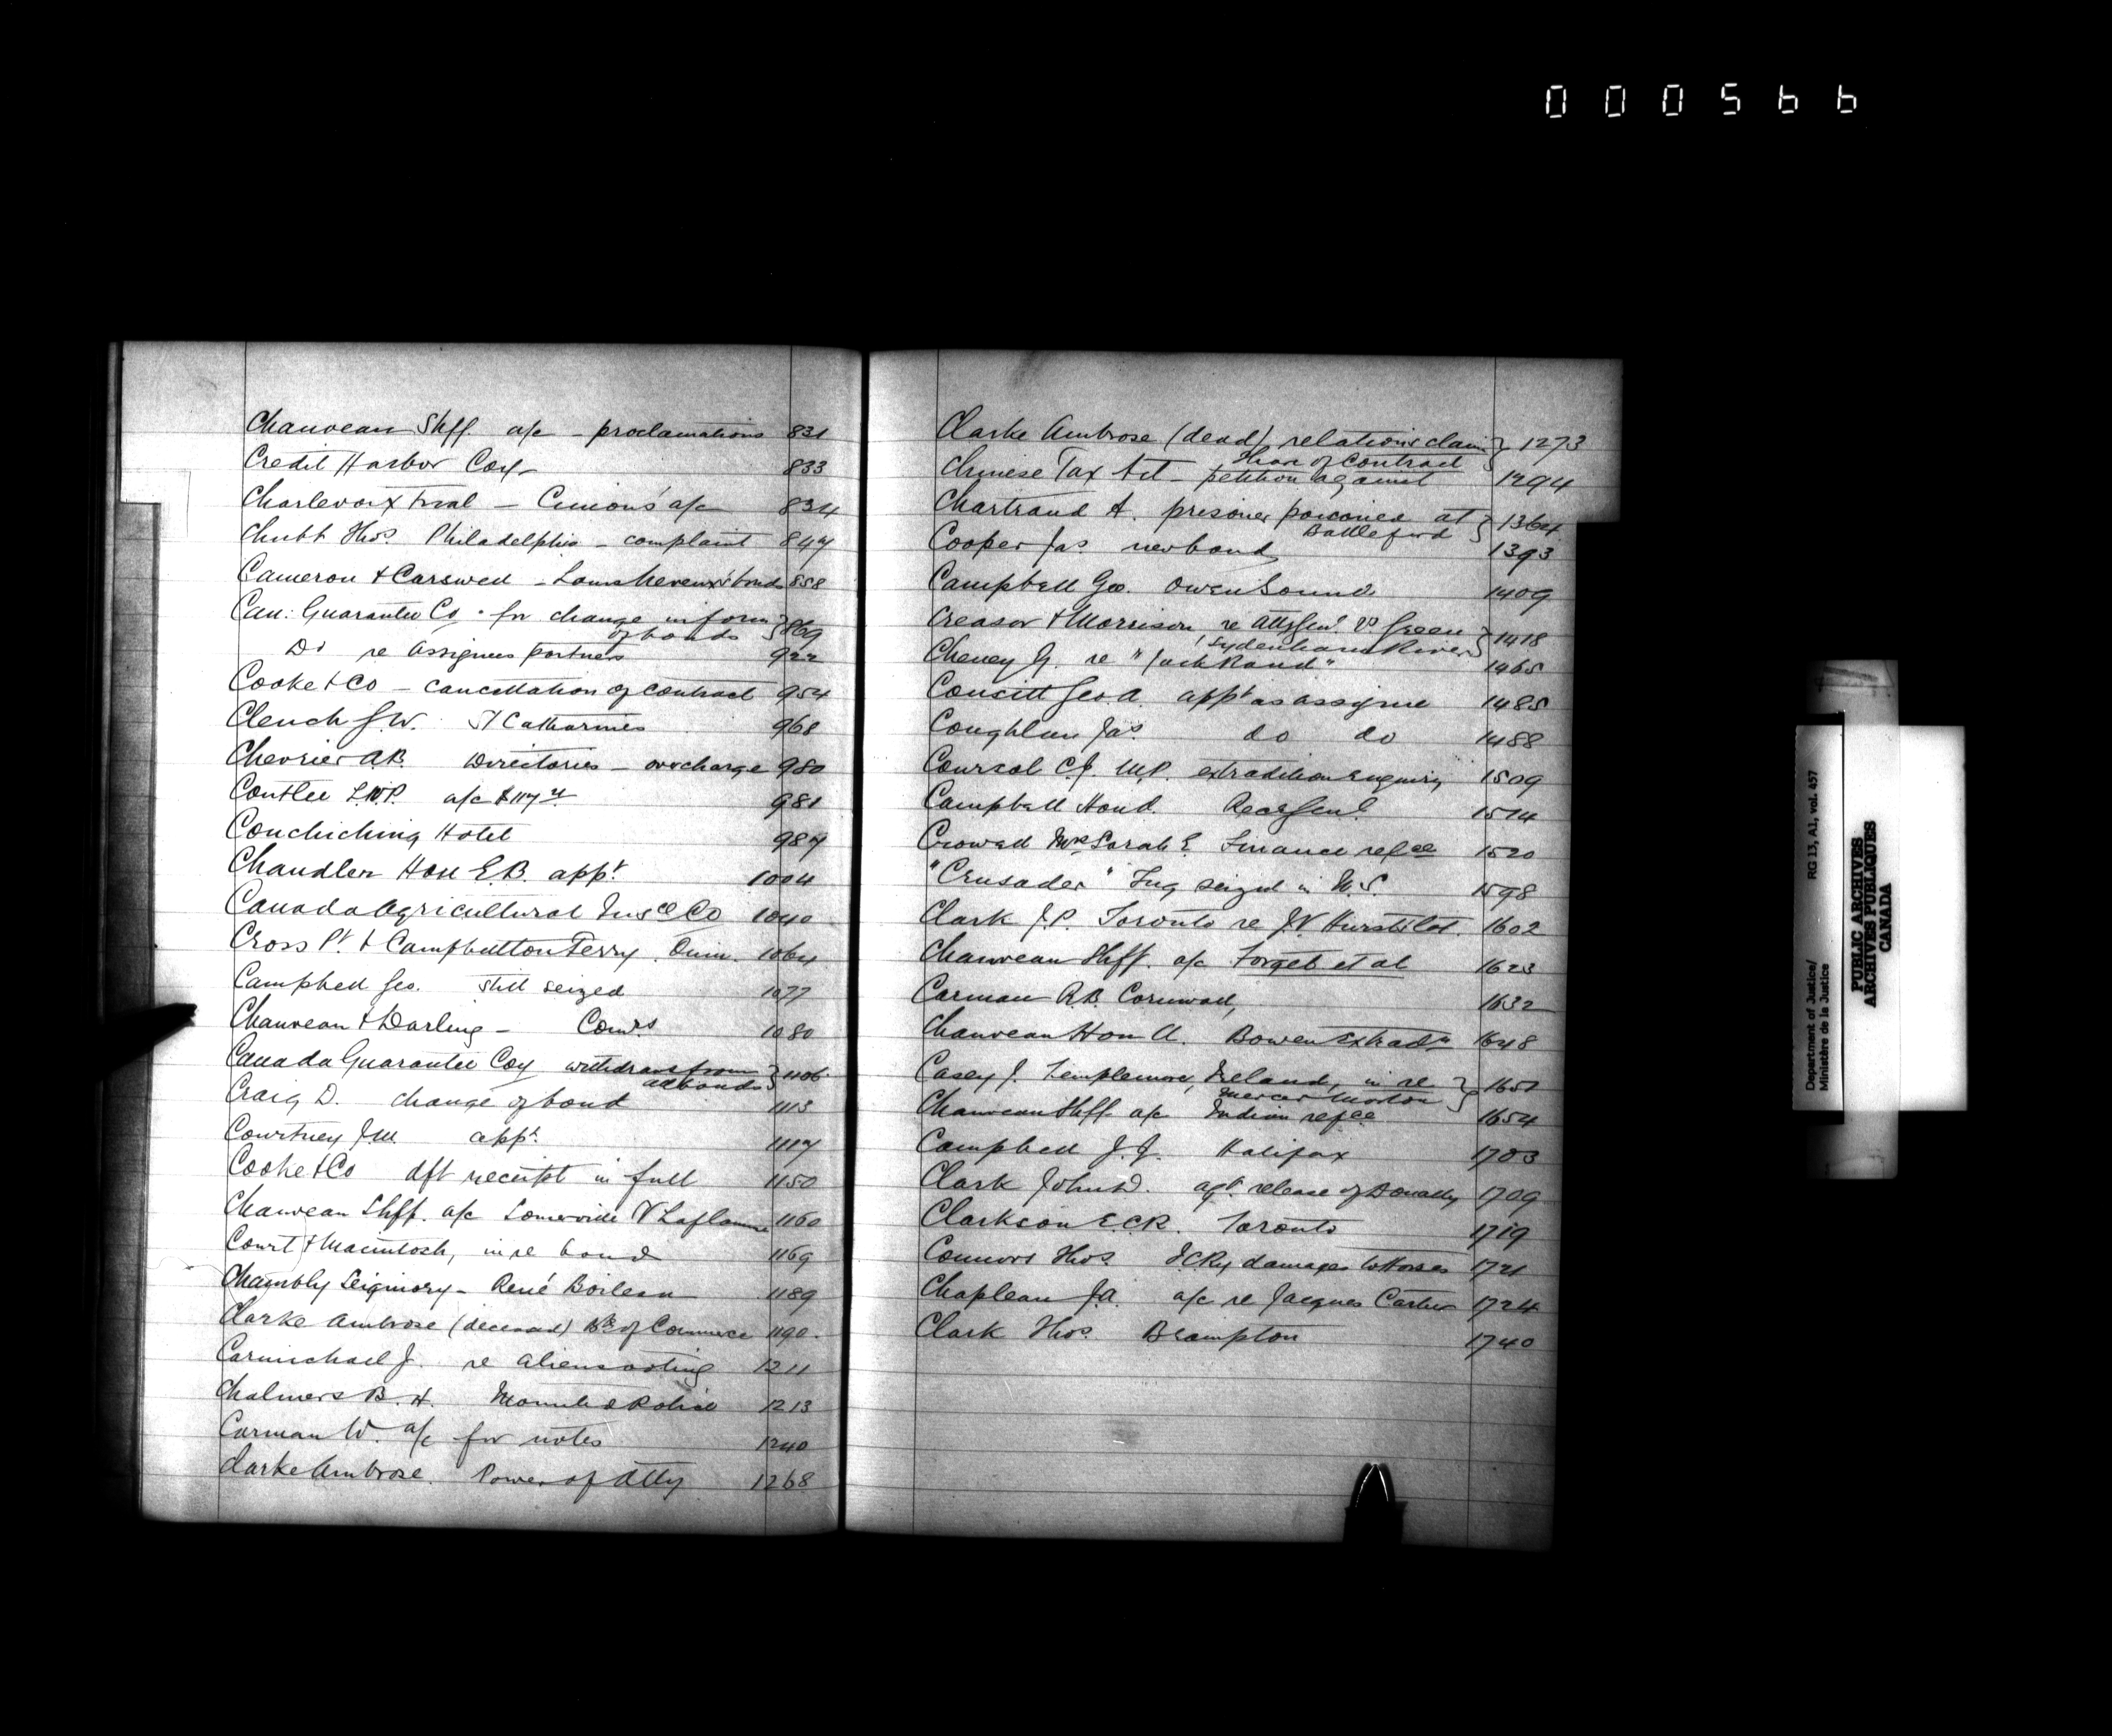 000566
Chauveau Shff. a/c - proclamations 831
Credit Harbor Coy 833
Charlevoix Trial - Cimon's a/c 834
Chubb Thos. Philadelphia - complaint 847
Cameron & Carswell - bonds 858
Can: Guarantee Co. for change in form of bonds } 869
Do re Assignees partners 922
Cooke & Co - cancellation of contract 954
Clench J.W. St Catharines 968
Chevrier A.B. Directories - overcharge 980
Coutlee L.W.P. a/c 981
Couchiching Hotel 987
Chandler Hon E.B. appt. 1004
Canada Agricultural Insce Co 1040
Cross Pt. & Campbellton Ferry. Quin. 1064
Campbell Geo. Still seized 1077
Chauveau & Darling - Comrs 1080
Canada Guarantee Coy withdraws from all bonds } 1106
Craig D. change of bond 1113
Courtney J.M appt. 1117
Cooke & Co dft receipt in full 1150
Chauveau Shff. a/c Somerville V Laflamme 1160
Court & Macintosh, in re bond 1169
Chambly Seigniory - René Boileau 1189
Clarke Ambrose (deceased) Bk of Commerce 1190.
Carmichael J. re aliens voting 1211
Chalmers B.H. Mounted Police 1213
Carman W. a/c for notes 1240
Clarke Ambrose. Power of Atty 1268
Clarke Ambrose (dead) relations claim } 1273
Chinese Tax Act - petition against 1294
Chartrand A. prisoner poisoned at Battleford } 1364
Cooper Jas new bond 1393
Campbell Geo. Owen Sound 1409
Creasor & Morrison re Atty Genl. vs Green (Sydenham River) } 1418
Cheney G. re "Jack Rand" 1465
Consitt Geo. A. appt as assignee 1485
Coughlan Jas. do do 1488
Coursol C.J. M.P. extradition enquiry 1509
Campbell Hond. Recr Genl. 1514
Crowell Mrs Sarah E. Finance refce 1520
"Crusader" Tug seized in N.S. 1598
Clark J.P. Toronto re lot. 1602
Chauveau Shff. a/c Forget et al 1623
Carman R.B. Cornwall, 1632
Chauveau Hon A. Bowen Extradn 1648
Casey J. Templemore, Ireland, in re Mercer Morton } 1651
Chauveau Shff. a/c Indian refce 1654
Campbell J.J. Halifax 1703
Clark John D. apn. release of Donally 1709
Clarkson E.C.R. Toronto 1719
Connors Thos. I C Ry damages to Horses 1721
Chapleau J.A. a/c re Jacques Cartier 1724
Clark Thos. Brampton 1740
Department of Justice/
Ministère de la Justice
RG 13, A1, vol. 457
PUBLIC ARCHIVES
ARCHIVES PUBLIQUES
CANADA